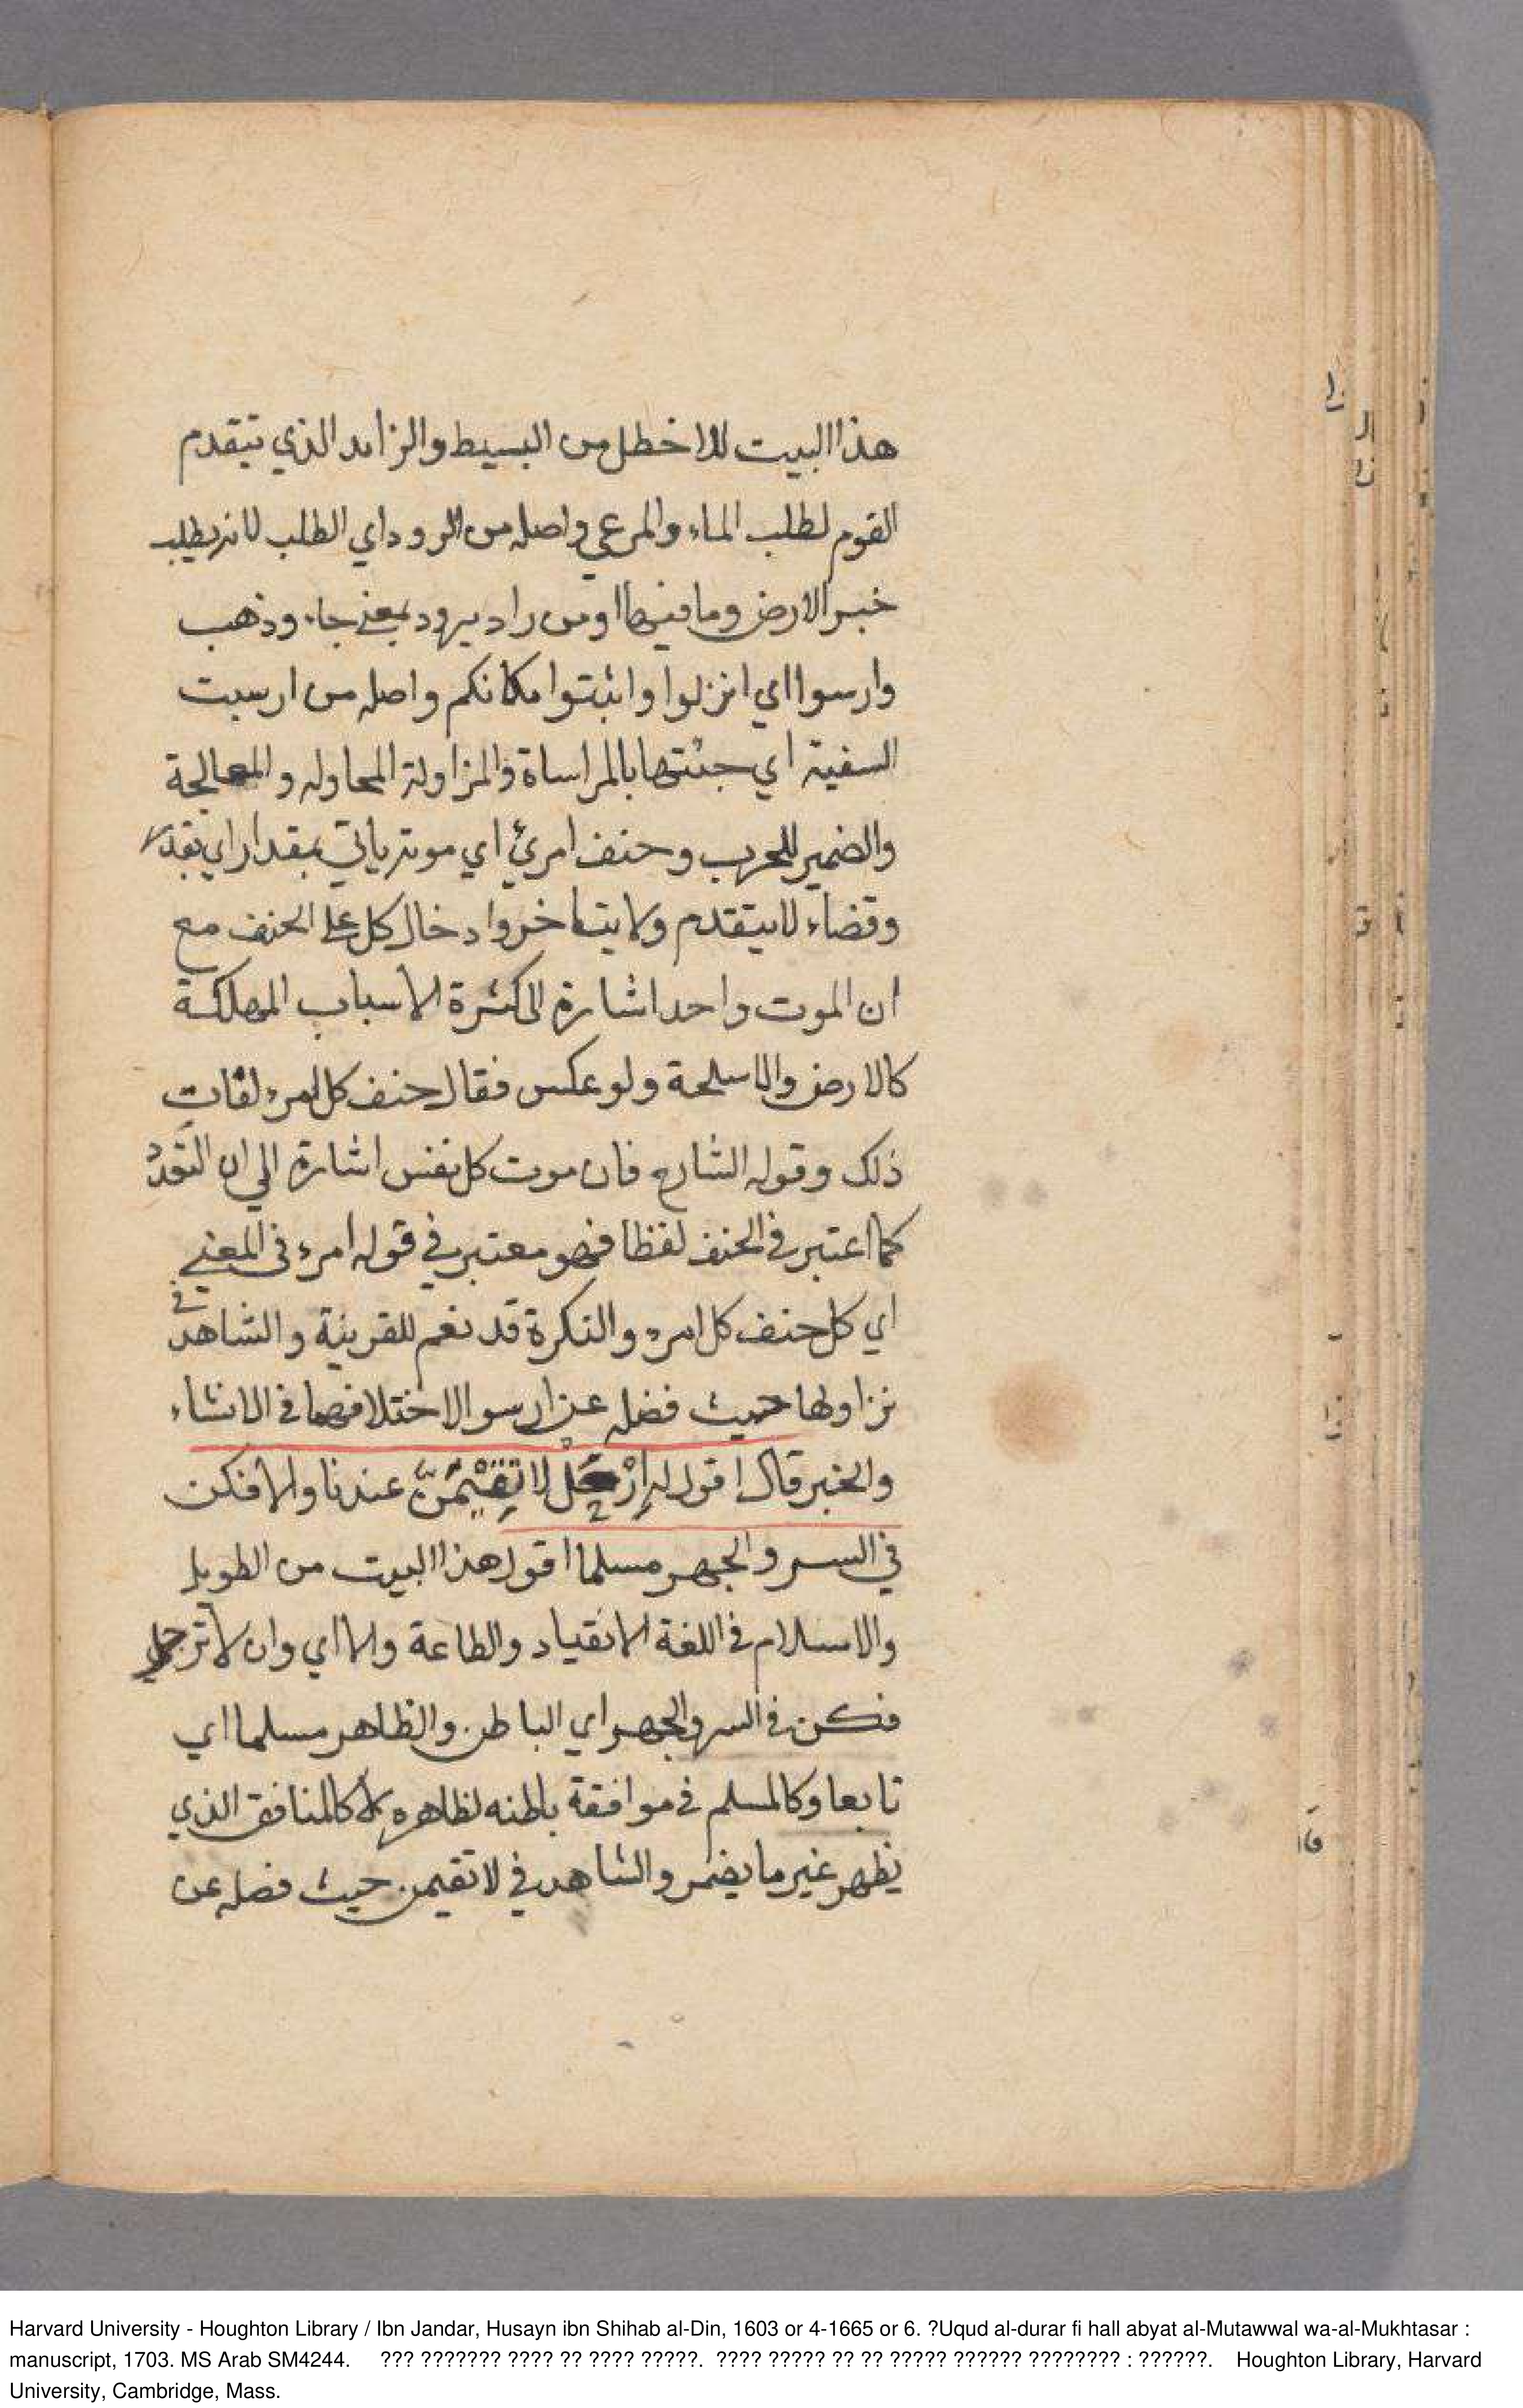 هذا البيت للاخطل من البسيط والزائد الذي يتقدم
القوم لطلب الماء والمرعي واصله من الرود اي الطلب لانه يطلب
خبر الارض وما فيها او من راد يرود بمعني جاء وذهب
وارسوا اي انزلوا واثبتوا مكانكم واصله من ارسيت
السفينة اي جئتها بالمراساة والمزاولة المحاوله والمعالجة
والضمير للحرب وحتف امرئ اي موته ياتي بمقدار اي بقدر
وقضاء لا يتقدم ولا يتاخر وادخال كل على الحتف مع
ان الموت واحد اشارة الى كثرة الاسباب المهلكة
كالارض والاسلحة ولو عكس فقال حتف كل امرء لفات
ذلك وقوله الشارح فان موت كل نفس اشارة الي ان التعدد
كما اعتبر في الحتف لفظا فهو معتبر في قوله امرء في المعني
اي كل حتف كل امرء والنكرة قد تعم للقرينة والشاهد في
نزاولها حيث فصله عن ارسوا لاختلافهما في الانشاء
والخبر قال اقول له اِرْحَلْ لا تُقِيْمَنَّ عندنا والا فكن
في السر والجهر مسلما اقول هذا البيت من الطويل
والاسلام في اللغة الانقياد والطاعة والا اي وان لا ترحل
فكن في السر والجهر اي الباطن والظاهر مسلما اي
تابعا وكالمسلم في موافقة باطنه لظاهره لا كالمنافق الذي
يظهر غير ما يضمر والشاهد في لا تقيمن حيث فصله عن
Harvard University - Houghton Library / Ibn Jandar, Husayn ibn Shihab al-Din, 1603 or 4-1665 or 6. ?Uqud al-durar fi hall abyat al-Mutawwal wa-al-Mukhtasar :
manuscript, 1703. MS Arab SM4244. ??? ??????? ???? ?? ???? ?????. ???? ????? ?? ?? ????? ?????? ???????? : ??????. Houghton Library, Harvard
University, Cambridge, Mass.